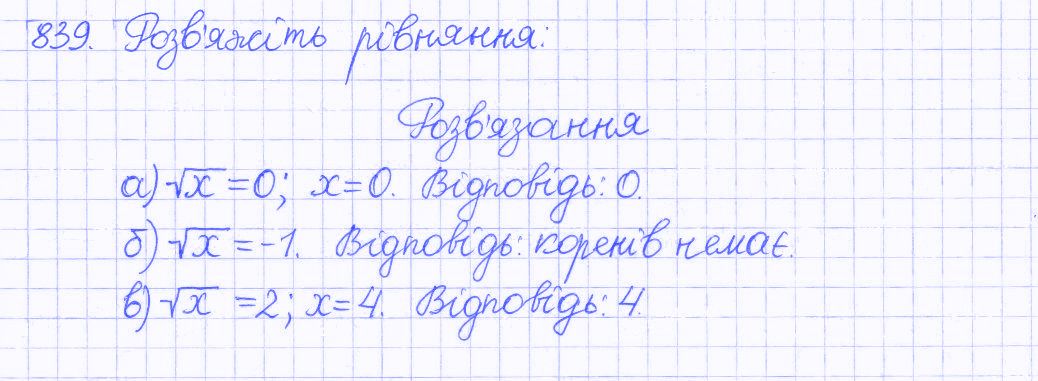 839. Розв'яжіть рівняння:
Розв'язання
а) √x = 0; x = 0. Відповідь: 0.
б) √x = -1. Відповідь: коренів немає.
в) √x = 2; x = 4. Відповідь: 4.